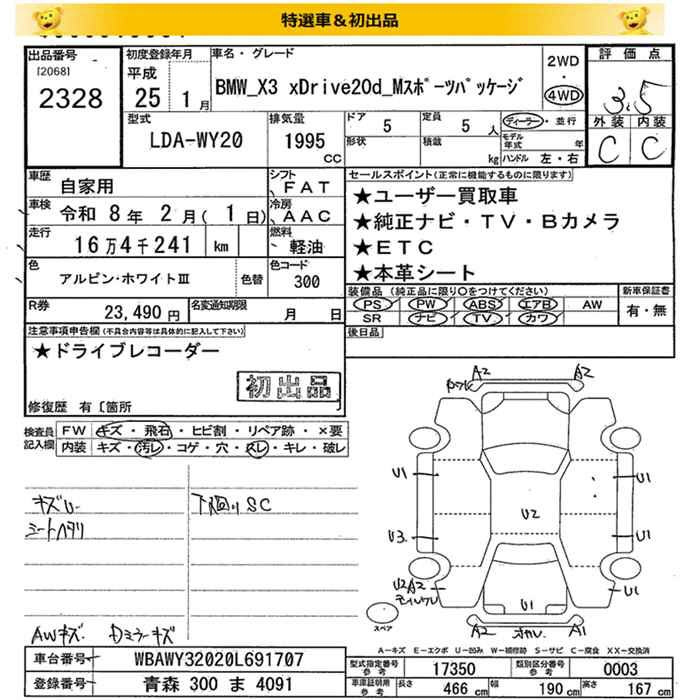 特選車＆初出品
出品番号 [2068] 2328
初度登録年月 平成 25 1月
車名・グレード BMW_X3 xDrive20d_Mｽﾎﾟｰﾂﾊﾟｯｹｰｼﾞ
2WD・4WD
評価点 3.5
外装 内装
C C
型式 LDA-WY20
排気量 1995 CC
ドア 5
定員 5人
形状
積載 kg
ディーラー・並行
モデル年式 年
ハンドル 左・右
車歴 自家用
シフト FAT
車検 令和 8年 2月 ( 1日)
冷房 AAC
走行 16万4千241 km
燃料 軽油
色 アルピン・ホワイトⅢ 色替
色コード 300
R券 23,490円
名変通知期限 月 日
セールスポイント(正常に機能するものに限ります)
★ユーザー買取車
★純正ナビ・TV・Bカメラ
★ETC
★本革シート
装備品 (純正品に限り○をつけてください)
PS PW ABS エアB AW
SR ナビ TV カワ
新車保証書 有・無
後日品
注意事項申告欄(不具合内容等は具体的に記入して下さい)
★ドライブレコーダー
初出品
修復歴 有〔箇所
検査員記入欄
FW キズ・飛石・ヒビ割・リペア跡・×要
内装 キズ・汚レ・コゲ・穴・スレ・キレ・破レ
キズU
シートヘタリ
下廻りSC
AWキズ Dミラーキズ
A2 A2
U1 U1
U2
U3 U1
U2A2 U1
U1
A2 A1
スペア
A－キズ E－エクボ U－凹み W－補修跡 S－サビ C－腐食 XX－交換済
車台番号 WBAWY32020L691707
登録番号 青森 300 ま 4091
型式指定番号 参考 17350
類別区分番号 参考 0003
車庫証明用 参考 長さ 466 cm 幅 190 cm 高さ 167 cm